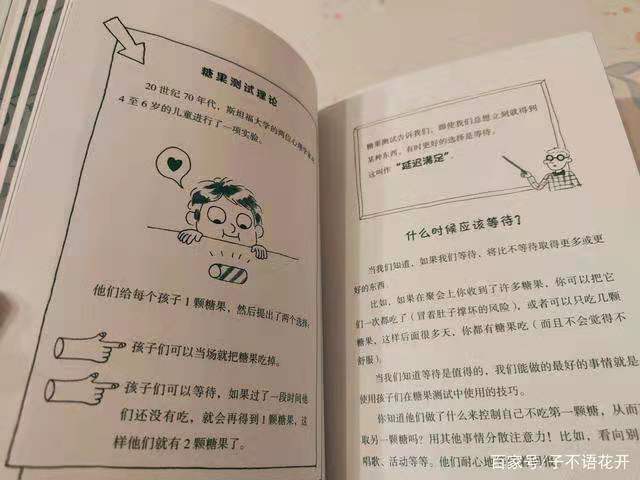 糖果测试理论
20世纪70年代，斯坦福大学的两位心理学家对
4至6岁的儿童进行了一项实验。
他们给每个孩子1颗糖果，然后提出了两个选择：
孩子们可以当场就把糖果吃掉。
孩子们可以等待，如果过了一段时间他
们还没有吃，就会再得到1颗糖果，这
样他们就有2颗糖果了。
糖果测试告诉我们，即使我们总想立刻就得到
某种东西，有时更好的选择是等待。
这叫作“延迟满足”。
什么时候应该等待？
当我们知道，如果我们等待，将比不等待取得更多或更
好的东西。
比如，如果在聚会上你收到了许多糖果，你可以把它
们一次都吃了（冒着肚子撑坏的风险），或者可以只吃几颗
糖果，这样后面很多天，你都有糖果吃（而且不会觉得不
舒服）。
当我们知道等待是值得的，我们能做的最好的事情就是
使用孩子们在糖果测试中使用的技巧。
你知道他们做了什么来控制自己不吃第一颗糖，从而
取另一颗糖吗？用其他事情分散注意力！比如，看向别
唱歌、活动等等。他们耐心地
百家号/子不语花开